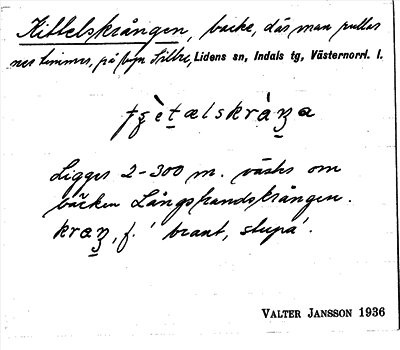 Kittelskrången, backe, där man rullar
ner timmer, på byn Sillre, Lidens sn, Indals tg, Västernorrl. l.
Ligger 2-300 m. väster om
bäcken Långstrandskrången.
f. ' brant, stupa'.
VALTER JANSSON 1936